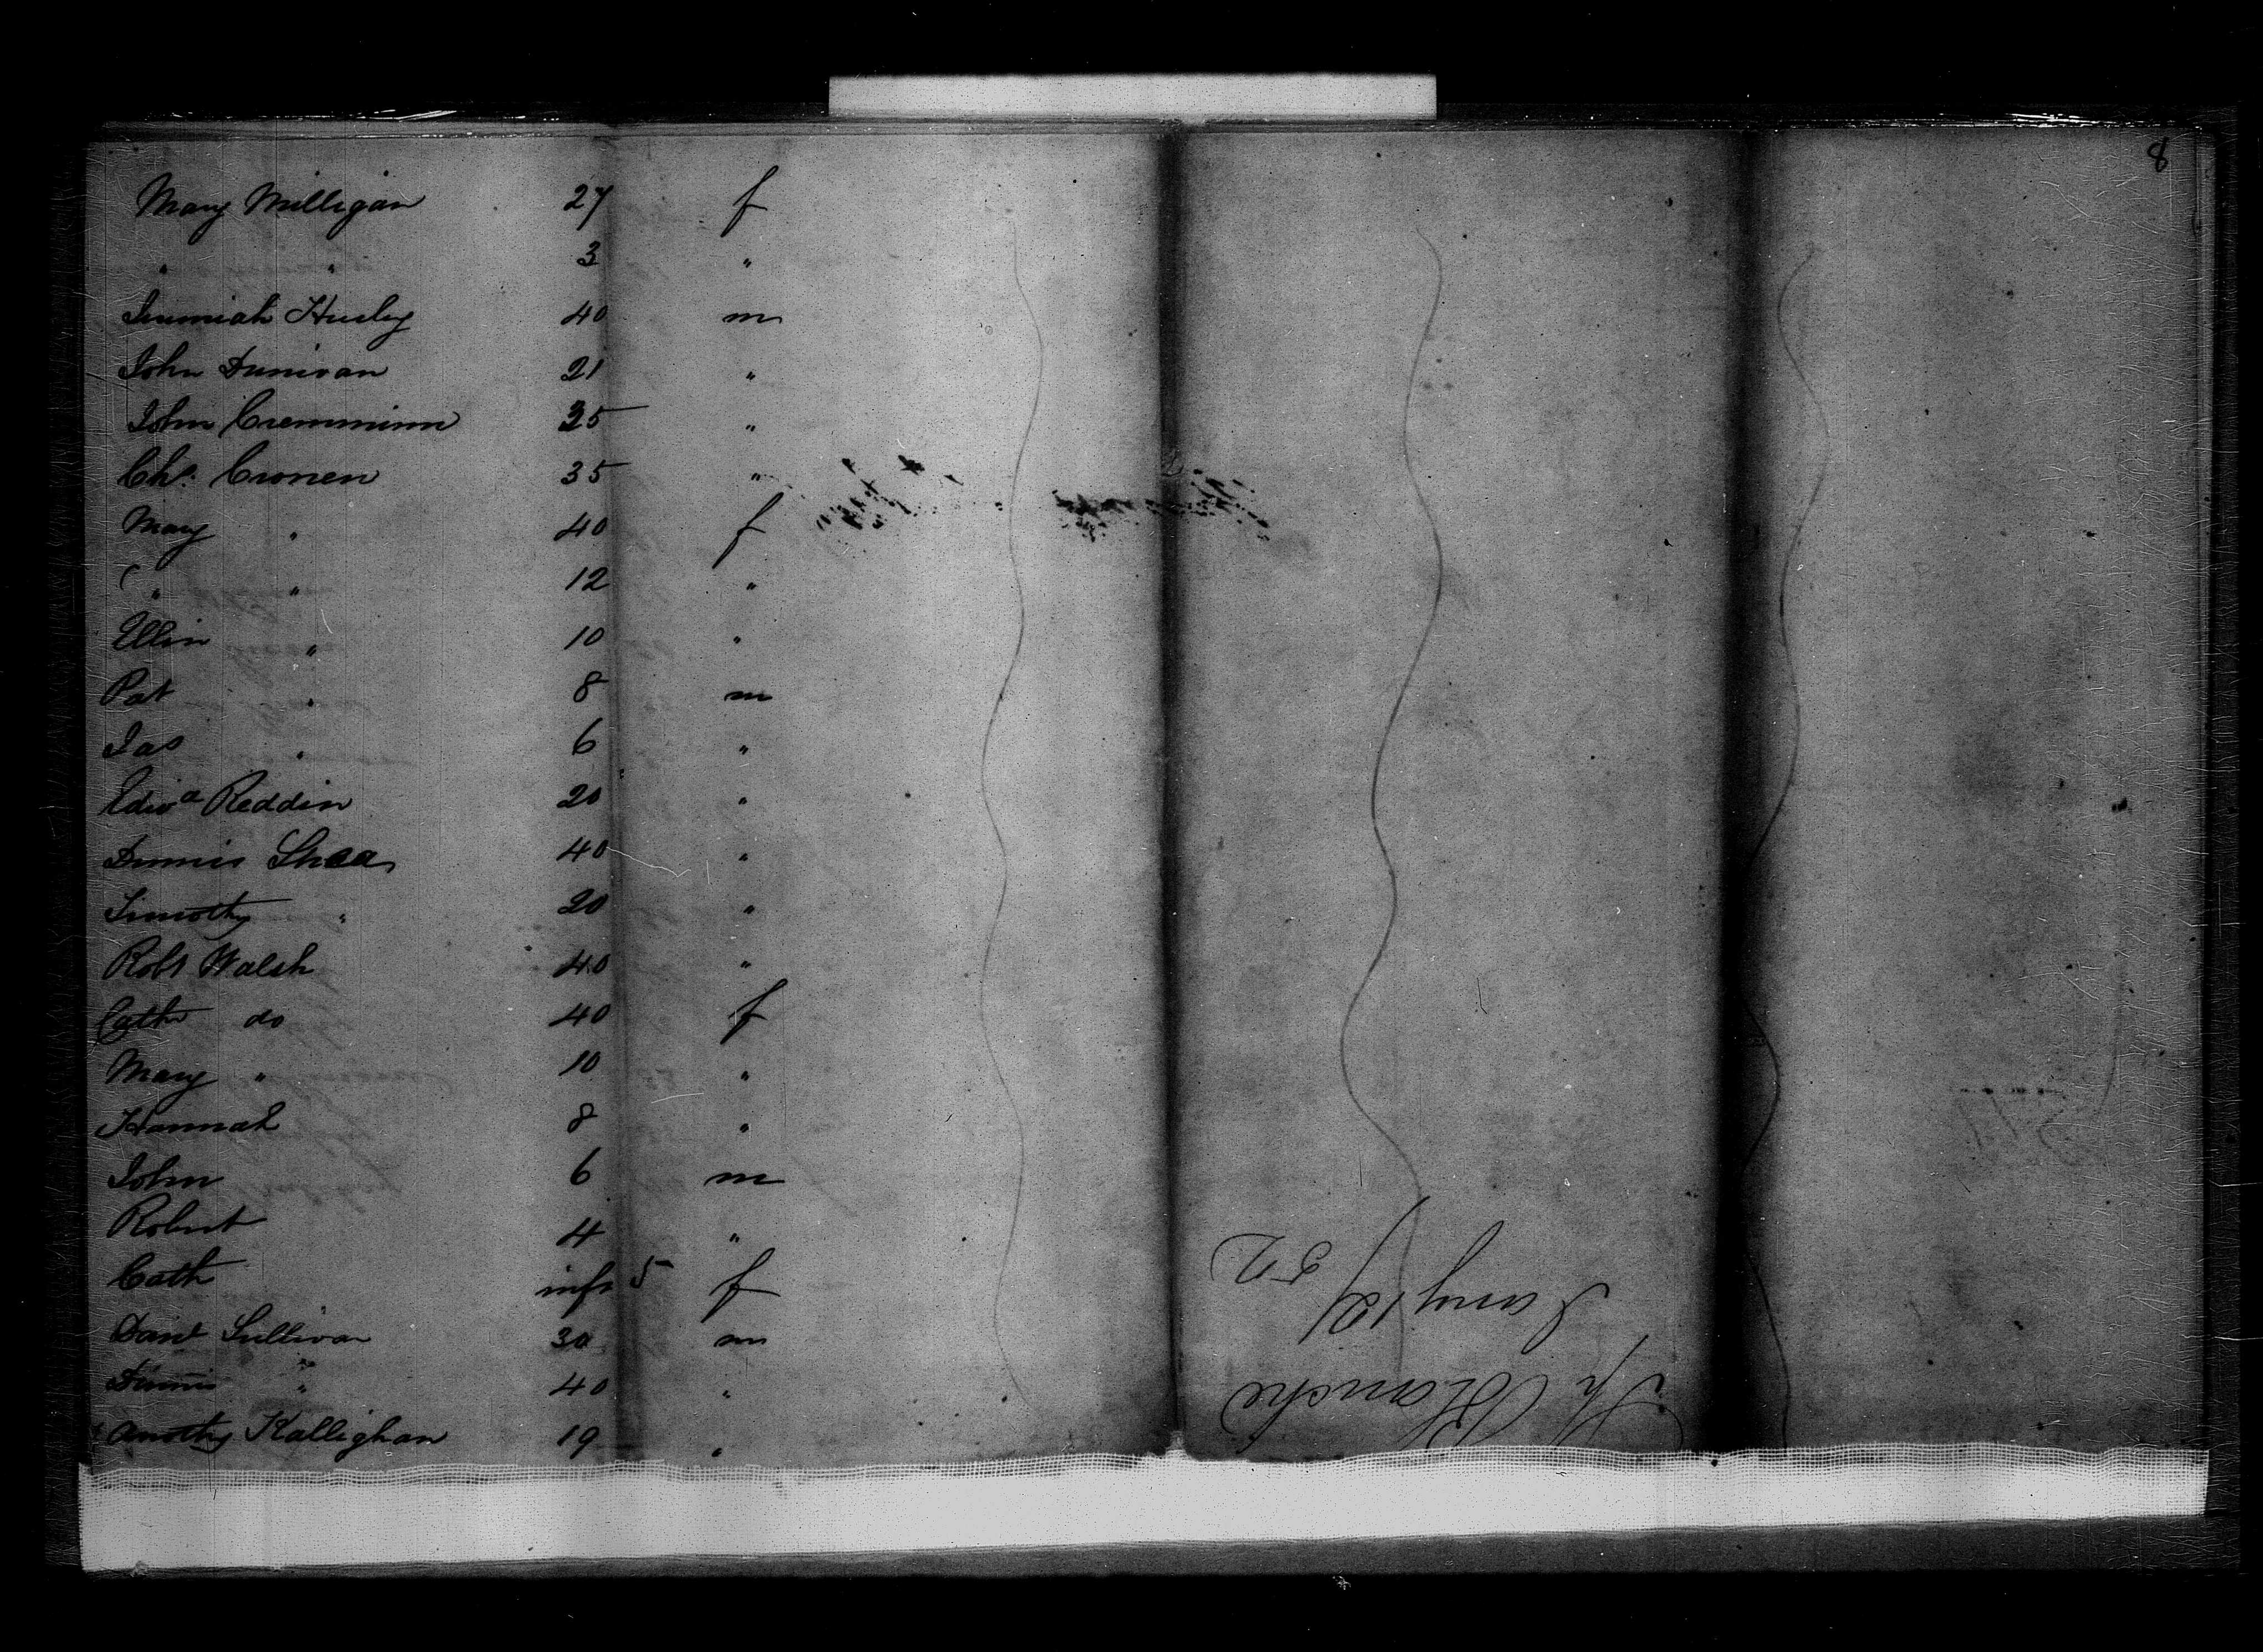 8
Mary Milligan 27 f
" " 3 "
Jeremiah Husley 40 m
John Dunivan 21 "
John Cremminn 35 "
Chs. Cronen 35 "
Mary " 40 f
( " " 12 "
Ellin " 10 "
Pat " 8 m
Jas " 6 "
Edwd Reddin 20 "
Dennis Shea 40 "
Timothy " 20 "
Robt Walsh 40 "
Cath do 40 f
Mary " 10 "
Hannah 8 "
John 6 m
Robert 4 "
Cath inft 5 f
Danl Sullivan 30 m
Dennis " 40 "
Kallighan 19 "
Sh Blanche
Jany 12/52